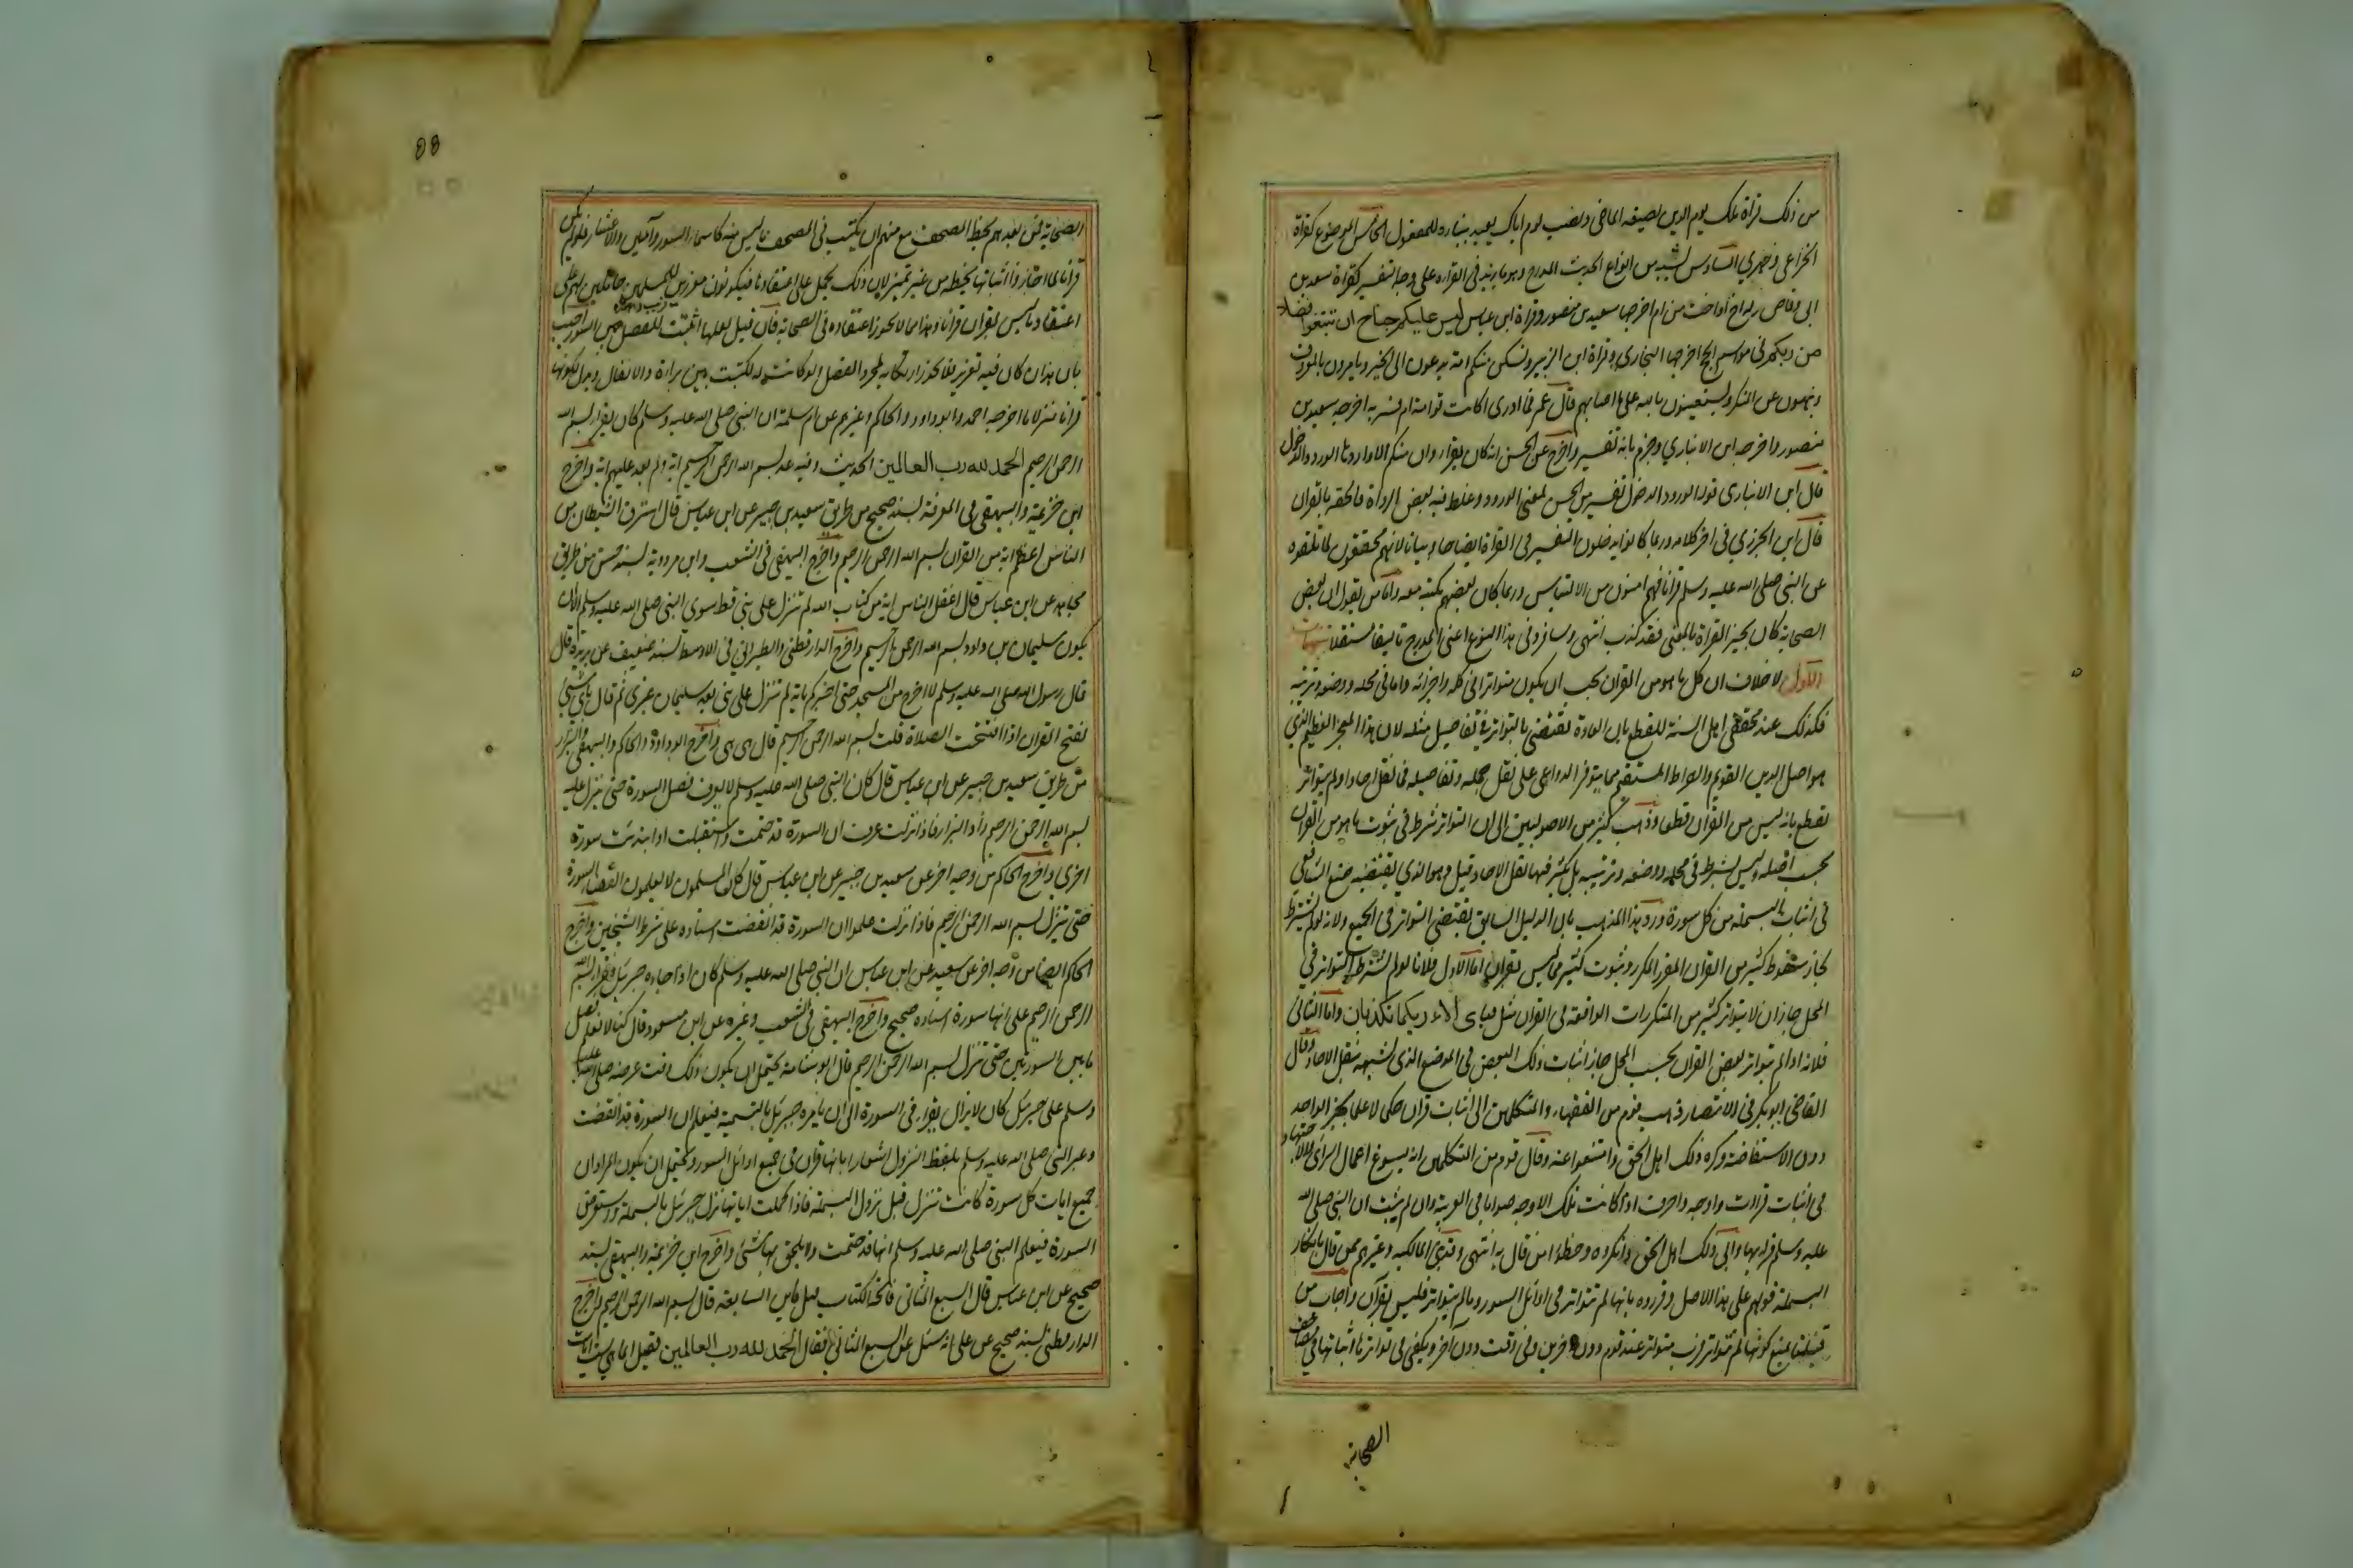 من ذلك قراة ملك يوم الدين بصيغه الماضى ونصب يوم اياك يعبد ببنائه للمفعول الخامس الموضوع كقراة
الخزاعى وظهر لي السادس يشبه من انواع الحديث المدرج وهو ما زيد فى القراة على وجه التفسير كقراة سعد بن
ابى وقاص وله اخ او اخت من ام اخرجها سعيد بن منصور وقراة ابن عباس ليس عليكم جناح ان تبتغوا فضلا
من ربكم فى مواسم الحج اخرجها البخارى وقراة ابن الزبير ولتكن منكم امة يدعون الى الخير ويامرون بالمعروف
وينهون عن المنكر ويستعينون بالله على ما اصابهم قال عمر فما ادرى اكانت قراءته ام فسر به اخرجه سعيد بن
منصور واخرجه ابن الانباري وجزم بانه تفسير واخرج عن الحسن انه كان يقرا وان منكم الا واردها الورود الدخول
قال ابن الانبارى قوله الورود الدخول تفسير من الحسن لمعنى الورود وغلط فيه بعض الرواة فالحقه بالقران
قال ابن الجزرى فى اخر كلامه وربما كانوا يدخلون التفسير فى القراة ايضاحا وبيانا لانهم محققون لما تلقوه
عن النبى صلى الله عليه وسلم قرانا فهم امنون من الالتباس وربما كان بعضهم يكتبه معه واما من يقول ان بعض
الصحابة كان يجيز القراة بالمعنى فقد كذب انتهى وسافرد فى هذا النوع اعنى المدرج تاليفا مستقلا تنبيهات
الاول لا خلاف ان كل ما هو من القران يجب ان يكون متواترا فى كله واجزائه واما فى محله ووضعه وترتيبه
فكذلك عند محققى اهل السنة للقطع بان العادة تقتضى بالتواتر فى تفاصيل مثله لان هذا المعجز العظيم الذى
هو اصل الدين القويم والصراط المستقيم مما يتوفر الدواعى على نقل جمله وتفاصيله فما نقل احادا ولم يتواتر
يقطع بانه ليس من القران قطعا وذهب كثير من الاصوليين الى ان التواتر شرط فى ثبوت ما هو من القران
بحسب اصله وليس بشرط فى محله ووضعه وترتيبه بل يكثر فيها نقل الاحاد قيل وهو الذى يقتضيه صنع الشافعى
فى اثبات البسملة من كل سورة ورد هذا المذهب بان الدليل السابق يقتضى التواتر فى الجميع ولانه لو لم يشترط
لجاز سقوط كثير من القران المقرر المكرر وثبوت كثير مما ليس بقران اما الاول فلانا لو لم نشترط التواتر فى
المحل جاز ان لا يتواتر كثير من المتكررات الواقعة فى القران مثل فباى الاء ربكما تكذبان واما الثانى
فلانه اذا لم يتواتر بعض القران بحسب المحل جاز اثبات ذلك البعض فى الموضع الذى يشبهه بنقل الاحاد وقال
القاضى ابو بكر فى الانتصار ذهب قوم من الفقهاء والمتكلمين الى اثبات قران حكما لا علما بخبر الواحد
دون الاستفاضة وكره ذلك اهل الحق وامتنعوا عنه وقال قوم من المتكلمين انه يسوغ اعمال الراى والاجتهاد
فى اثبات قراات واوجه واحرف اذا كانت تلك الاوجه صوابا فى العربية وان لم يثبت ان النبى صلى الله
عليه وسلم قرا بها وابى ذلك اهل الحق وانكروه وخطؤا من قال به انتهى وقد بنى المالكية وغيرهم ممن قال بانكار
البسملة قولهم على هذا الاصل وقرروه بانها لم تتواتر فى اوائل السور وما لم يتواتر فليس بقرآن واجاب من
قبلنا بمنع كونها لم تتواتر فرب متواتر عند قوم دون اخرين وفى وقت دون آخر ويكفى فى تواترها اثباتها فى مصاحف
الصحابة
الصحابة فمن بعدهم بخط المصحف مع منعهم ان يكتب فى المصحف ما ليس منه كاسماء السور وآمين والاعشار فلو لم تكن
قرانا لما اجازوا اثباتها بخطه من غير تمييز لان ذلك يحمل على اعتقادها فيكونون مغررين بالمسلمين حاملين لهم على
اعتقاد ما ليس بقران قرانا وهذا مما لا يجوز اعتقاده فى الصحابة فان قيل لعلها اثبتت للفصل بين السور اجيب
بان هذا كان فيه تغرير فلا يجوز ارتكابه لمجرد الفصل ولو كانت له لكتبت بين براءة والانفال ويدل لكونها
قرانا منزلا ما اخرجه احمد وابو داود والحاكم وغيرهم عن ام سلمة ان النبى صلى الله عليه وسلم كان يقرا بسم الله
الرحمن الرحيم الحمد لله رب العالمين الحديث وفيه عد بسم الله الرحمن الرحيم اية ولم يعد عليهم اية واخرج
ابن خزيمة والبيهقى فى المعرفة بسند صحيح من طريق سعيد بن جبير عن ابن عباس قال استرق الشيطان من
الناس اعظم اية من القران بسم الله الرحمن الرحيم واخرج البيهقى فى الشعب وابن مردويه بسند حسن من طريق
مجاهد عن ابن عباس قال اغفل الناس اية من كتاب الله لم تنزل على نبى قط سوى النبى صلى الله عليه وسلم الا ان
يكون سليمان بن داود بسم الله الرحمن الرحيم واخرج الدارقطنى والطبرانى فى الاوسط بسند ضعيف عن بريدة قال
قال رسول الله صلى الله عليه وسلم لا اخرج من المسجد حتى اخبركم باية لم تنزل على نبى بعد سليمان غيرى ثم قال باى شئ
تفتح القران اذا افتتحت الصلاة قلت بسم الله الرحمن الرحيم قال هى هى واخرج ابو داود والحاكم والبيهقى والبزار
من طريق سعيد بن جبير عن ابن عباس قال كان النبى صلى الله عليه وسلم لا يعرف فصل السورة حتى تنزل عليه
بسم الله الرحمن الرحيم زاد البزار فاذا نزلت عرف ان السورة قد ختمت واستقبلت او ابتدئت سورة
اخرى واخرج الحاكم من وجه اخر عن سعيد بن جبير عن ابن عباس قال كان المسلمون لا يعلمون انقضاء السورة
حتى تنزل بسم الله الرحمن الرحيم فاذا نزلت علموا ان السورة قد انقضت اسناده على شرط الشيخين واخرج
الحاكم ايضا من وجه اخر عن سعيد عن ابن عباس ان النبى صلى الله عليه وسلم كان اذا جاءه جبريل فقرا بسم الله
الرحمن الرحيم علم انها سورة اسناده صحيح واخرج البيهقى فى الشعب وغيره عن ابن مسعود قال كنا لا نعلم فصل
ما بين السورتين حتى تنزل بسم الله الرحمن الرحيم قال ابو شامة يحتمل ان يكون ذلك وقت عرضه صلى الله عليه
وسلم على جبريل كان لا يزال يقرا فى السورة الى ان يامره جبريل بالتسمية فيعلم ان السورة قد انقضت
وعبر النبى صلى الله عليه وسلم بلفظ النزول اشعارا بانها قران فى جميع اوائل السور ويحتمل ان يكون المراد ان
جميع ايات كل سورة كانت تنزل قبل نزول البسملة فاذا كملت اياتها نزل جبريل بالبسملة واستعرض
السورة فيعلم النبى صلى الله عليه وسلم انها قد ختمت ولا يلحق بها شئ واخرج ابن خزيمة والبيهقى بسند
صحيح عن ابن عباس قال السبع المثانى فاتحة الكتاب قيل فاين السابعة قال بسم الله الرحمن الرحيم واخرج
الدارقطنى بسند صحيح عن على انه سئل عن السبع المثانى فقال الحمد لله رب العالمين فقيل انما هى ست ايات